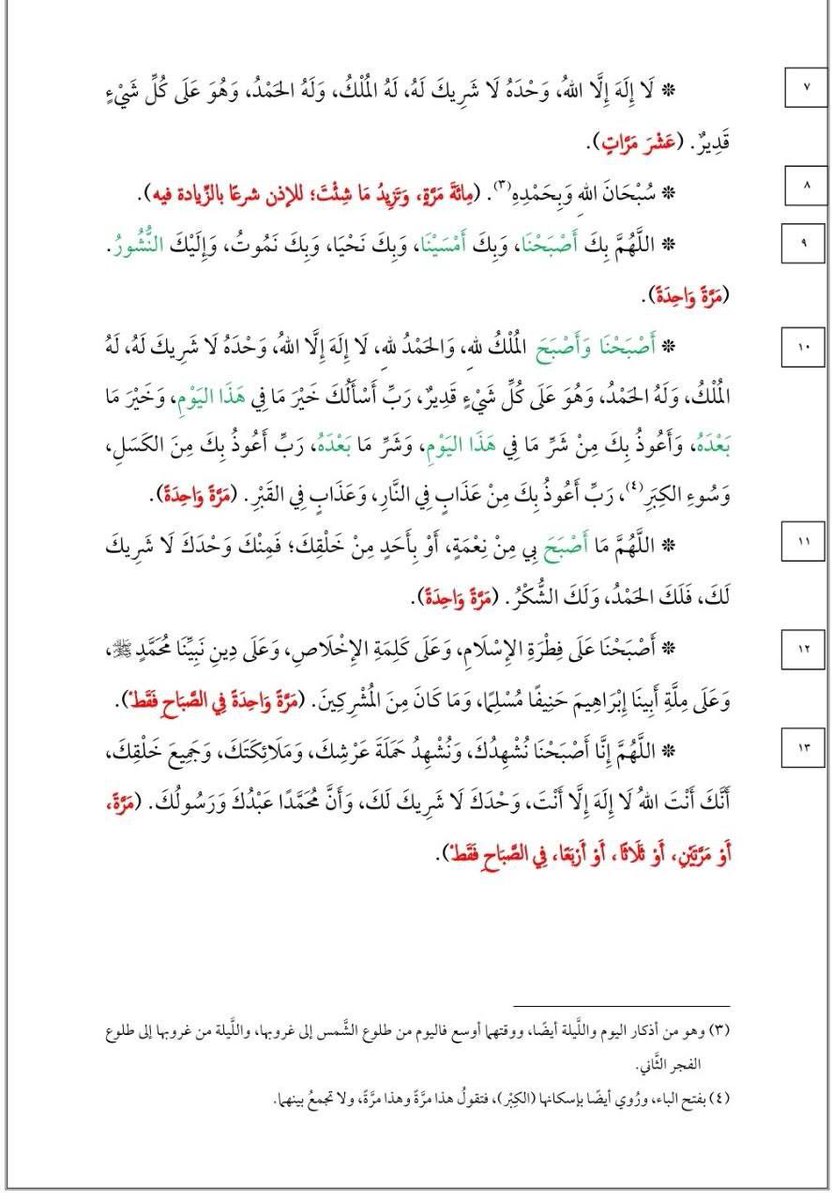 ٧
❊ لَا إِلَهَ إِلَّا اللهُ، وَحْدَهُ لَا شَرِيكَ لَهُ، لَهُ المُلْكُ، وَلَهُ الحَمْدُ، وَهُوَ عَلَى كُلِّ شَيْءٍ
قَدِيرٌ. (عَشْرَ مَرَّاتٍ).
٨
❊ سُبْحَانَ اللهِ وَبِحَمْدِهِ(٣). (مِائَةَ مَرَّةٍ، وَتَزِيدُ مَا شِئْتَ؛ للإذن شرعًا بالزِّيادة فيه).
٩
❊ اللَّهُمَّ بِكَ أَصْبَحْنَا، وَبِكَ أَمْسَيْنَا، وَبِكَ نَحْيَا، وَبِكَ نَمُوتُ، وَإِلَيْكَ النُّشُورُ.
(مَرَّةً وَاحِدَةً).
١٠
❊ أَصْبَحْنَا وَأَصْبَحَ المُلْكُ للهِ، وَالحَمْدُ للهِ، لَا إِلَهَ إِلَّا اللهُ، وَحْدَهُ لَا شَرِيكَ لَهُ، لَهُ
المُلْكُ، وَلَهُ الحَمْدُ، وَهُوَ عَلَى كُلِّ شَيْءٍ قَدِيرٌ، رَبِّ أَسْأَلُكَ خَيْرَ مَا فِي هَذَا اليَوْمِ، وَخَيْرَ مَا
بَعْدَهُ، وَأَعُوذُ بِكَ مِنْ شَرِّ مَا فِي هَذَا اليَوْمِ، وَشَرِّ مَا بَعْدَهُ، رَبِّ أَعُوذُ بِكَ مِنَ الكَسَلِ،
وَسُوءِ الكِبَرِ(٤)، رَبِّ أَعُوذُ بِكَ مِنْ عَذَابٍ فِي النَّارِ، وَعَذَابٍ فِي القَبْرِ. (مَرَّةً وَاحِدَةً).
١١
❊ اللَّهُمَّ مَا أَصْبَحَ بِي مِنْ نِعْمَةٍ، أَوْ بِأَحَدٍ مِنْ خَلْقِكَ؛ فَمِنْكَ وَحْدَكَ لَا شَرِيكَ
لَكَ، فَلَكَ الحَمْدُ، وَلَكَ الشُّكْرُ. (مَرَّةً وَاحِدَةً).
١٢
❊ أَصْبَحْنَا عَلَى فِطْرَةِ الإِسْلَامِ، وَعَلَى كَلِمَةِ الإِخْلَاصِ، وَعَلَى دِينِ نَبِيِّنَا مُحَمَّدٍ ﷺ،
وَعَلَى مِلَّةِ أَبِينَا إِبْرَاهِيمَ حَنِيفًا مُسْلِمًا، وَمَا كَانَ مِنَ المُشْرِكِينَ. (مَرَّةً وَاحِدَةً فِي الصَّبَاحِ فَقَطْ).
١٣
❊ اللَّهُمَّ إِنَّا أَصْبَحْنَا نُشْهِدُكَ، وَنُشْهِدُ حَمَلَةَ عَرْشِكَ، وَمَلَائِكَتَكَ، وَجَمِيعَ خَلْقِكَ،
أَنَّكَ أَنْتَ اللهُ لَا إِلَهَ إِلَّا أَنْتَ، وَحْدَكَ لَا شَرِيكَ لَكَ، وَأَنَّ مُحَمَّدًا عَبْدُكَ وَرَسُولُكَ. (مَرَّةً،
أَوْ مَرَّتَيْنِ، أَوْ ثَلَاثًا، أَوْ أَرْبَعًا، فِي الصَّبَاحِ فَقَطْ).
(٣) وهو من أذكار اليوم واللَّيلة أيضًا، ووقتهما أوسع فاليوم من طلوع الشَّمس إلى غروبها، واللَّيلة من غروبها إلى طلوع
الفجر الثَّاني.
(٤) بفتح الباء، ورُوي أيضًا بإسكانها (الكِبْر)، فتقولُ هذا مرَّةً وهذا مرَّةً، ولا تجمعُ بينهما.